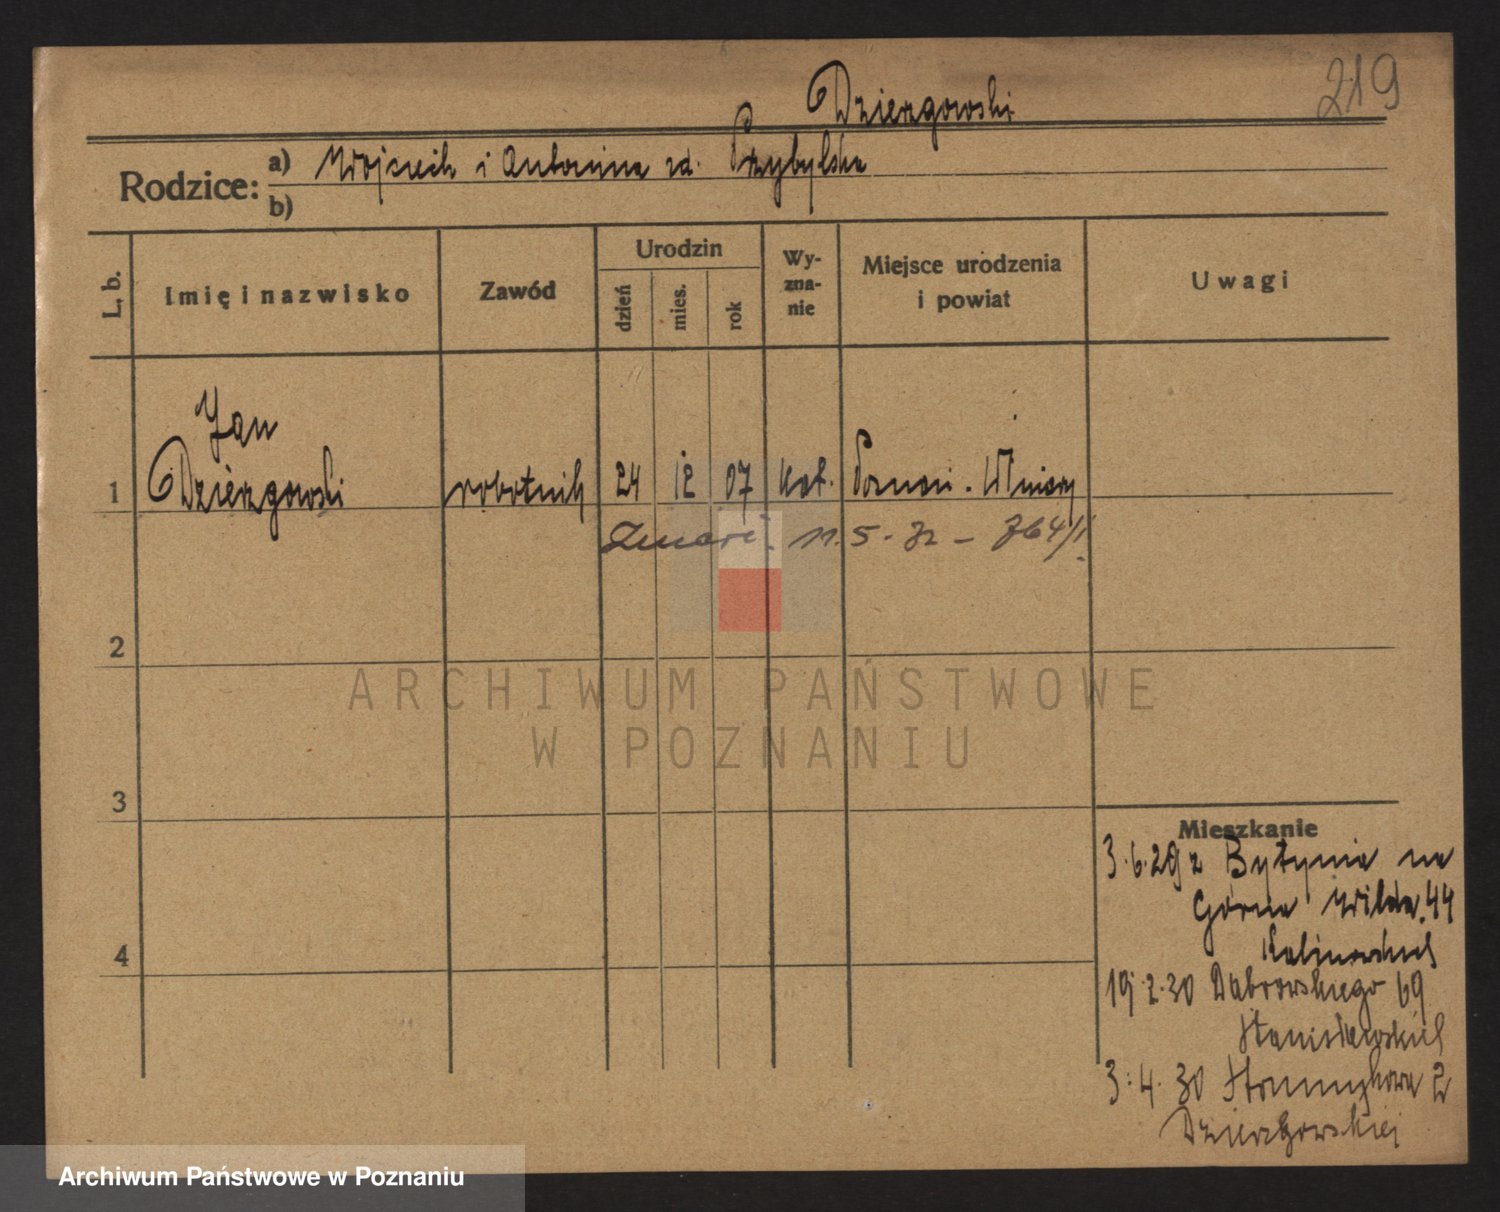 219
Dzierzgowski
Rodzice: a) Wojciech i Antonina zd. Przybylska
b)
L. b. Imię i nazwisko Zawód Urodzin dzień mies. rok Wy-zna-nie Miejsce urodzenia i powiat Uwagi
Jan
1 Dzierzgowski robotnik 24 12 07 kat. Poznań - Winiary
Zmarł. 11.5.32 - 764/II
2
ARCHIWUM PAŃSTWOWE
W POZNANIU
3
Mieszkanie
3.6.29 z Bytynia na
Górna Wilda 44
4 Kalinowskich
19.2.30 Dąbrowskiego 69
Stanisławskich
3.4.30 Strumykowa 2
Dzierzgowskiej
Archiwum Państwowe w Poznaniu